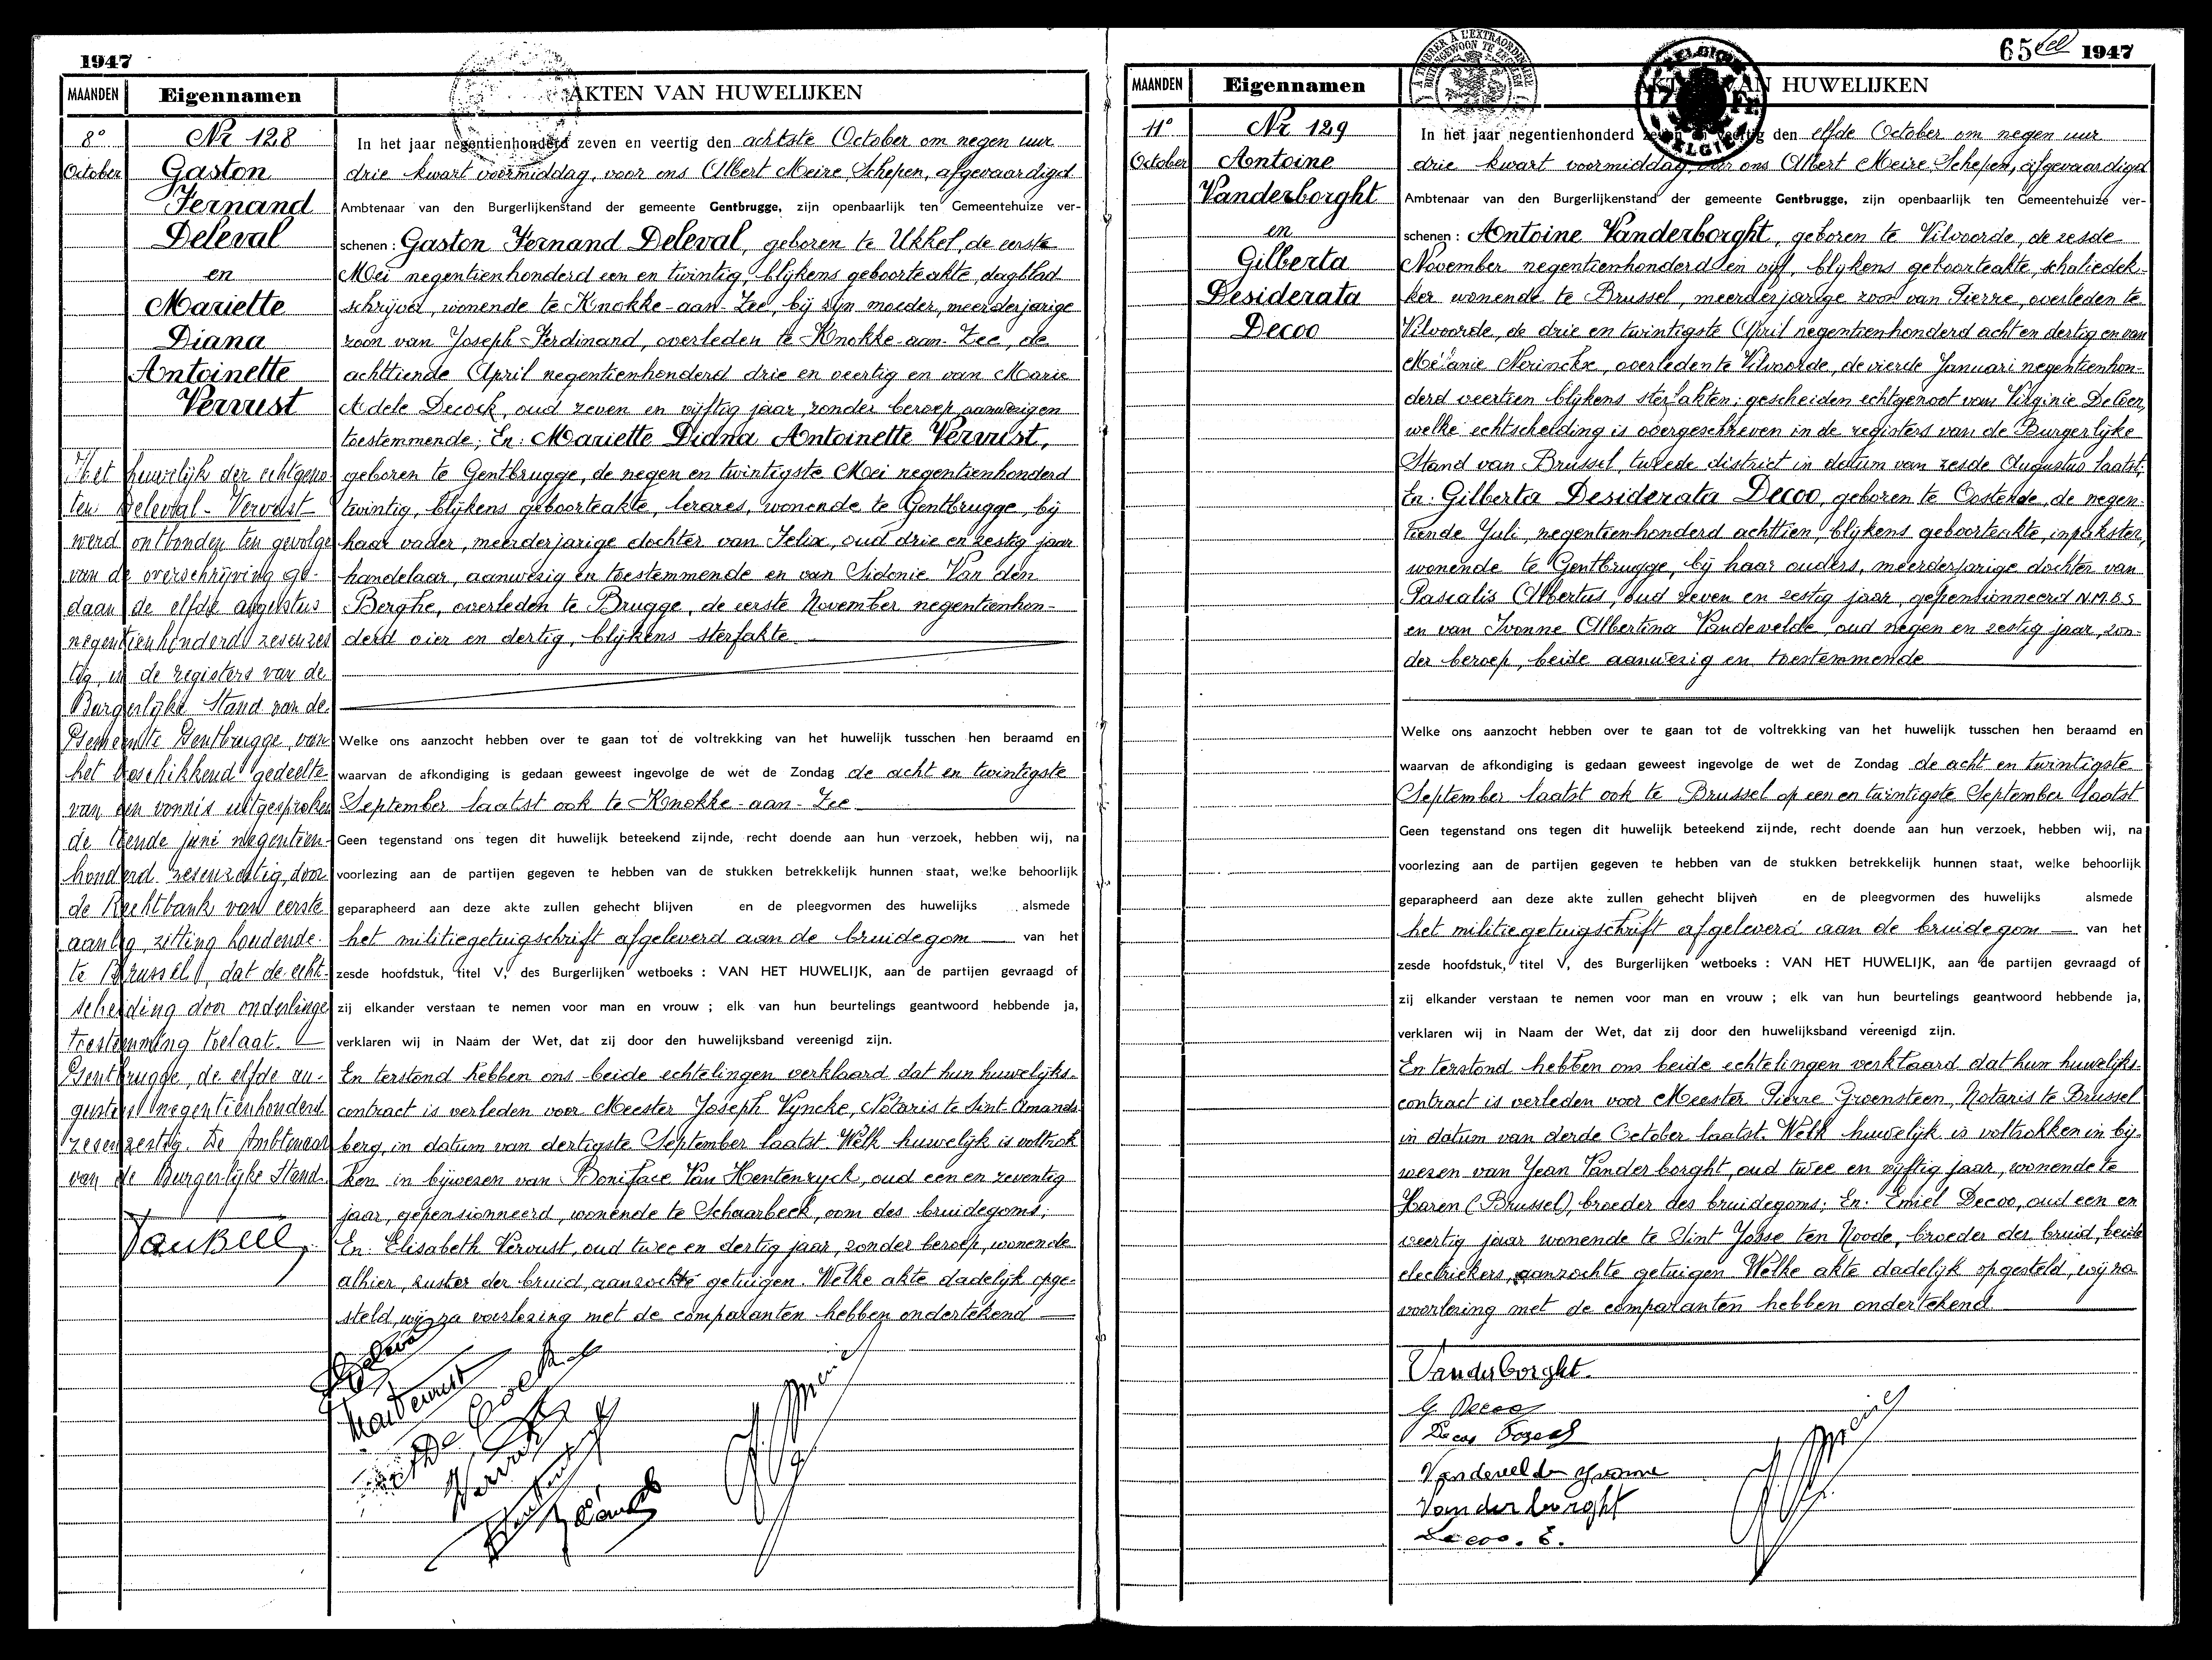 1947
MAANDEN Eigennamen AKTEN VAN HUWELIJKEN
8°
October
Nr 128
Gaston
Fernand
Deleval
en
Mariette
Diana
Antoinette
Vervust
In het jaar negentienhonderd zeven en veertig den achtste October om negen uur
drie kwart voormiddag, voor ons Albert Meire, Schepen, afgevaardigd
Ambtenaar van den Burgerlijkenstand der gemeente Gentbrugge, zijn openbaarlijk ten Gemeentehuize ver-
schenen : Gaston Fernand Deleval, geboren te Ukkel, de eerste
Mei negentienhonderd een en twintig, blijkens geboorteakte, dagblad
schrijver, wonende te Knokke-aan-Zee, bij zijn moeder, meerderjarige
zoon van Joseph-Ferdinand, overleden te Knokke-aan-Zee, de
achttiende April negentienhonderd drie en veertig en van Marie
Adele Decock, oud zeven en vijftig jaar, zonder beroep, aanwezigen
toestemmende; En: Mariette Diana Antoinette Vervust,
geboren te Gentbrugge, de negen en twintigste Mei negentienhonderd
twintig, blijkens geboorteakte, lerares, wonende te Gentbrugge, bij
haar vader, meerderjarige dochter van Felix, oud drie en zestig jaar
handelaar, aanwezig en toestemmende en van Sidonie Van den
Berghe, overleden te Brugge, de eerste November negentienhon-
derd vier en dertig, blijkens sterfakte
Welke ons aanzocht hebben over te gaan tot de voltrekking van het huwelijk tusschen hen beraamd en
waarvan de afkondiging is gedaan geweest ingevolge de wet de Zondag de acht en twintigste
September laatst ook te Knokke-aan-Zee
Geen tegenstand ons tegen dit huwelijk beteekend zijnde, recht doende aan hun verzoek, hebben wij, na
voorlezing aan de partijen gegeven te hebben van de stukken betrekkelijk hunnen staat, welke behoorlijk
geparapheerd aan deze akte zullen gehecht blijven en de pleegvormen des huwelijks alsmede
het militiegetuigschrift afgeleverd aan de bruidegom van het
zesde hoofdstuk, titel V, des Burgerlijken wetboeks : VAN HET HUWELIJK, aan de partijen gevraagd of
zij elkander verstaan te nemen voor man en vrouw ; elk van hun beurtelings geantwoord hebbende ja,
verklaren wij in Naam der Wet, dat zij door den huwelijksband vereenigd zijn.
En terstond hebben ons beide echtelingen verklaard dat hun huwelijks-
contract is verleden voor Meester Joseph Vyncke, Notaris te Sint-Amands-
berg, in datum van dertigste September laatst. Welk huwelijk is voltrok
ken in bijwezen van Boniface Van Hentenryck, oud een en zeventig
jaar, gepensionneerd, wonende te Schaarbeek, oom des bruidegoms;
En: Elisabeth Vervust, oud twee en dertig jaar, zonder beroep, wonende
alhier, zuster der bruid, aanzochte getuigen. Welke akte dadelijk opge-
steld, wij na voorlezing met de comparanten hebben ondertekend
Het huwelijk der echtgeno-
ten Deleval - Vervust
werd ontbonden ten gevolge
van de overschrijving ge-
daan de elfde augustus
negentienhonderd zesenzes
tig, in de registers van de
Burgerlijke Stand van de
Gemeente Gentbrugge, van
het beschikkend gedeelte
van een vonnis uitgesproken
de tiende juni negentien-
honderd zesenzestig, door
de Rechtbank van eerste
aanleg, zitting houdende
te Brussel, dat de echt-
scheiding door onderlinge
toestemming toelaat.
Gentbrugge, de elfde au-
gustus negentienhonderd
zesenzestig. De Ambtenaar
van de Burgerlijke Stand.
65 1947
MAANDEN Eigennamen AKTEN VAN HUWELIJKEN
11°
October
Nr 129
Antoine
Vanderborght
en
Gilberta
Desiderata
Decoo
In het jaar negentienhonderd zeven en veertig den elfde October om negen uur
drie kwart voormiddag, voor ons Albert Meire, Schepen, afgevaardigd
Ambtenaar van den Burgerlijkenstand der gemeente Gentbrugge, zijn openbaarlijk ten Gemeentehuize ver-
schenen : Antoine Vanderborght, geboren te Vilvoorde, de zesde
November negentienhonderd en vijf, blijkens geboorteakte, schaliedek-
ker wonende te Brussel, meerderjarige zoon van Pierre, overleden te
Vilvoorde, de drie en twintigste April negentienhonderd acht en dertig en van
Mélanie Nerinckx, overleden te Vilvoorde, de vierde Januari negentienhon-
derd veertien blijkens sterfakten; gescheiden echtgenoot van Virginie
welke echtscheiding is overgeschreven in de registers van de Burgerlijke
Stand van Brussel, tweede district in datum van zesde Augustus laatst;
En: Gilberta Desiderata Decoo, geboren te Oostende, de negen-
tiende Juli, negentienhonderd achttien, blijkens geboorteakte, inpakster,
wonende te Gentbrugge, bij haar ouders, meerderjarige dochter van
Pascalis Albertus, oud zeven en zestig jaar, gepensionneerd N.M.B.S
en van Ivonne Albertina Vandevelde, oud negen en zestig jaar, zon-
der beroep, beide aanwezig en toestemmende
Welke ons aanzocht hebben over te gaan tot de voltrekking van het huwelijk tusschen hen beraamd en
waarvan de afkondiging is gedaan geweest ingevolge de wet de Zondag de acht en twintigste
September laatst ook te Brussel op een en twintigste September laatst
Geen tegenstand ons tegen dit huwelijk beteekend zijnde, recht doende aan hun verzoek, hebben wij, na
voorlezing aan de partijen gegeven te hebben van de stukken betrekkelijk hunnen staat, welke behoorlijk
geparapheerd aan deze akte zullen gehecht blijven en de pleegvormen des huwelijks alsmede
het militiegetuigschrift afgeleverd aan de bruidegom van het
zesde hoofdstuk, titel V, des Burgerlijken wetboeks : VAN HET HUWELIJK, aan de partijen gevraagd of
zij elkander verstaan te nemen voor man en vrouw ; elk van hun beurtelings geantwoord hebbende ja,
verklaren wij in Naam der Wet, dat zij door den huwelijksband vereenigd zijn.
En terstond hebben ons beide echtelingen verklaard dat hun huwelijks-
contract is verleden voor Meester Pierre Groensteen, Notaris te Brussel
in datum van derde October laatst. Welk huwelijk is voltrokken in bij-
wezen van Jean Vanderborght, oud twee en vijftig jaar, wonende te
Haren (Brussel), broeder des bruidegoms; En: Emiel Decoo, oud een en
veertig jaar wonende te Sint Josse ten Noode, broeder der bruid, beide
electriekers, aanzochte getuigen. Welke akte dadelijk opgesteld, wij na
voorlezing met de comparanten hebben ondertekend
Vanderborght.
G Decoo
Vandevelde Yvonne
Vanderborght
Decoo. E.